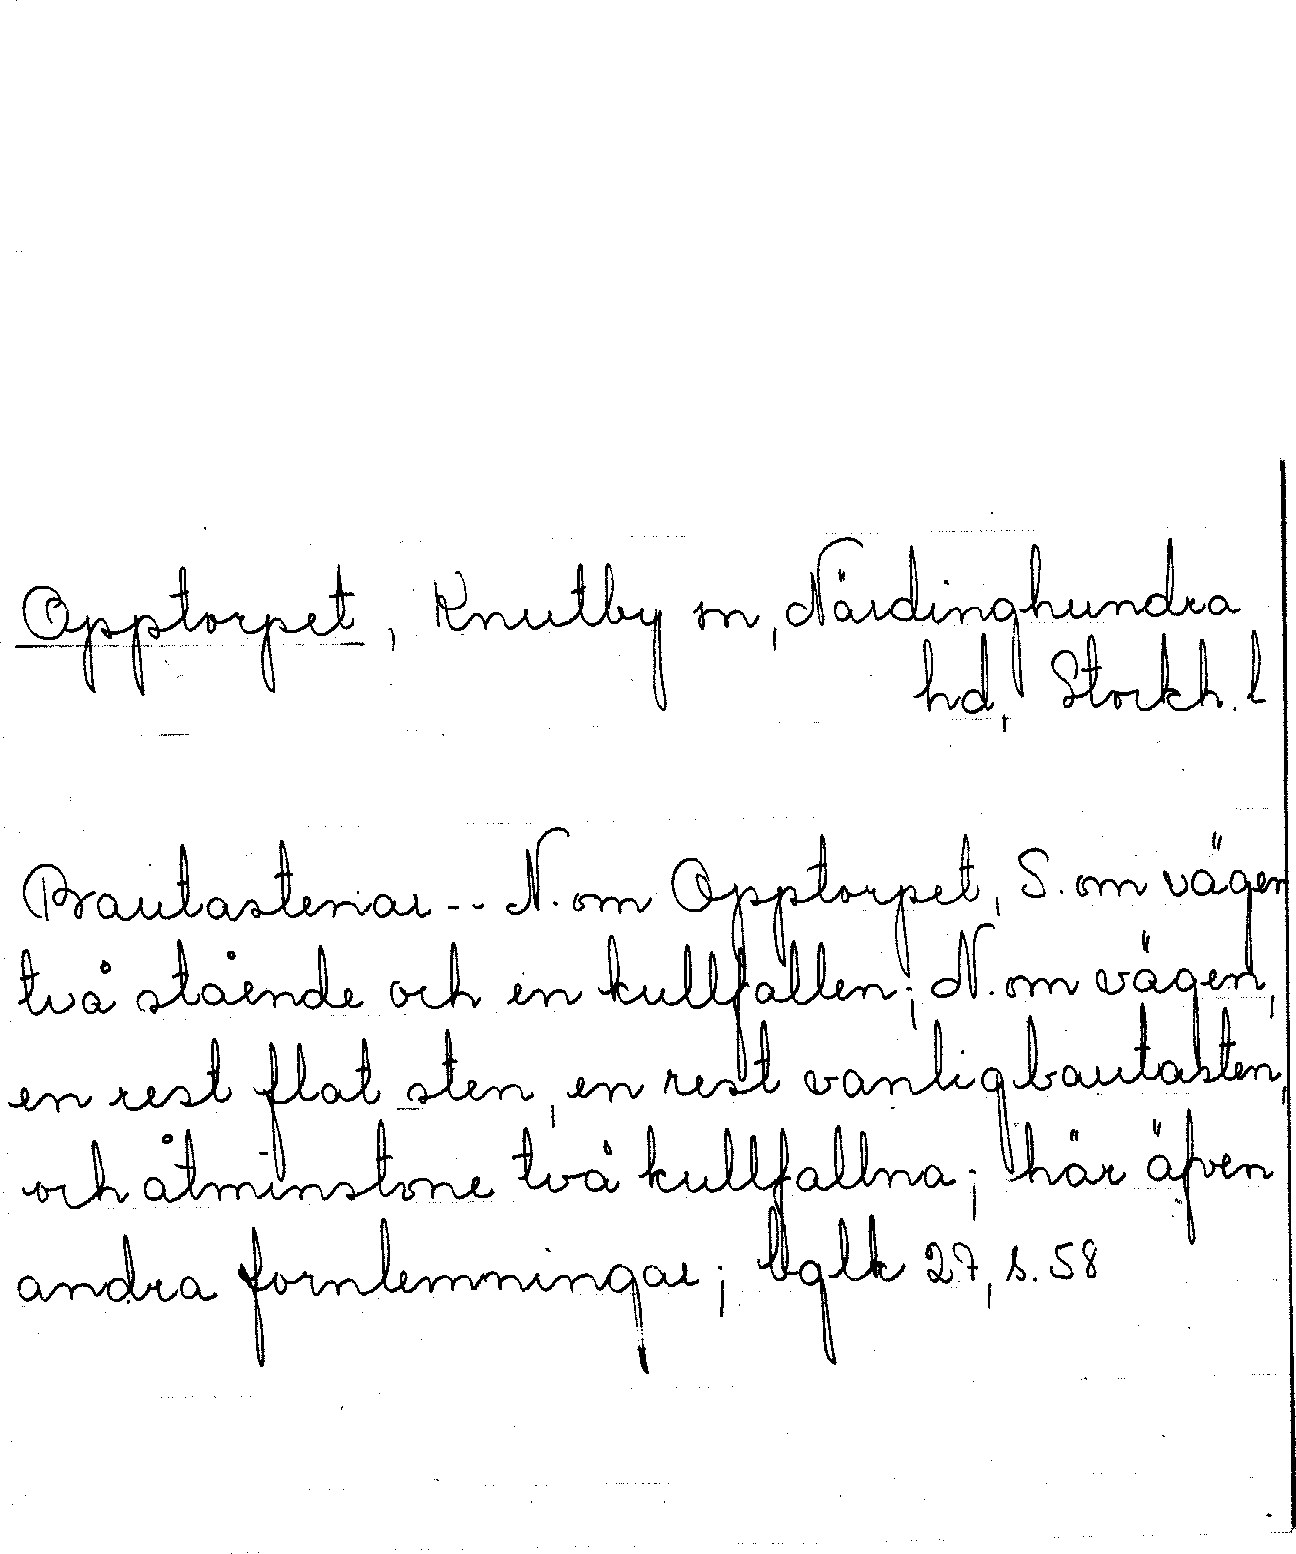 Opptorpet, Knutby sn, Närdinghundra
hd, Stockh. l
Bautastenar -- N. om Opptorpet, S. om vägen
två stående och en kullfallen; N. om vägen,
en rest flat sten, en rest vanlig bautasten,
och åtminstone två kullfallna; här äfven
andra fornlemningar; bglk 27, s. 58